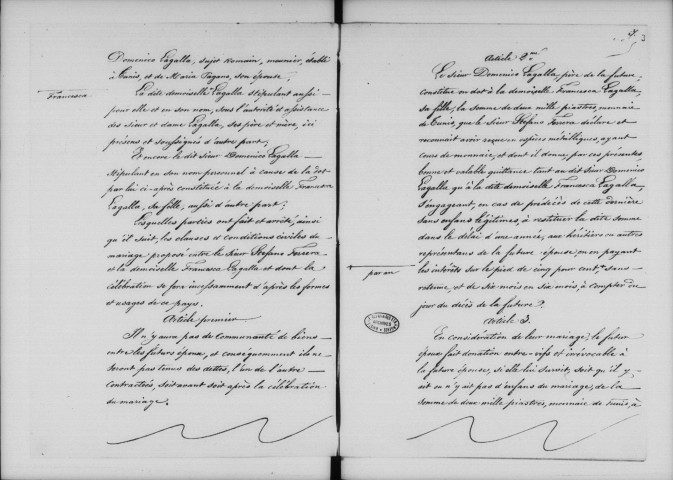 Domenico Lagalla, sujet Romain, meunier, établi
à Tunis, et de Maria Pagano, son épouse,
La dite demoiselle Lagalla stipulant aussi
Francesca
pour elle et en son nom, sous l'autorité et assistance
des sieur et dame Lagalla, ses père et mère, ici
présens et soussignés d'autre part;
Et encore le dit Sieur Domenico Lagalla
stipulant en son nom personnel à cause de la dot
par lui ci-après constituée à la demoiselle Francesca
Lagalla, sa fille, aussi d'autre part;
Lesquelles parties ont fait et arrêté, ainsi
qu'il suit, les clauses et conditions civiles du
mariage proposé entre le Sieur Stefano Ferrera
et la demoiselle Francesca Lagalla et dont la
célébration se fera incessamment d'après les formes
et usages de ce pays.
Article premier
Il n'y aura pas de Communauté de biens
entre les futurs époux, et conséquemment ils ne
seront pas tenus des dettes, l'un de l'autre
Contractées, soit avant soit après la célébration
du mariage.
3
Article 2me
Le Sieur Domenico Lagalla, père de la future,
constitue en dot à la demoiselle Francesca Lagalla,
sa fille, la somme de deux mille piastres, monnaie
de Tunis, que le Sieur Stefano Ferrera déclare et
reconnait avoir reçue en espèces métalliques, ayant
cours de monnaie, et dont il donne, par ces présentes,
bonne et valable quittance tant au dit Sieur Domenico
Lagalla qu'à la dite demoiselle Francesca Lagalla,
s'engageant, en cas de prédécès de cette dernière
sans enfans légitimes, à restituer la dite somme
dans le délai d'une année, aux héritiers ou autres
représentans de la future épouse, en en payant
par an
les intérêts sur le pied de cinq pour cent, sans
retenue, et de six mois en six mois, à compter du
jour du décès de la future.
Article 3.
En considération de leur mariage, le futur
époux fait donation entre-vifs et irrévocable à
la future épouse, si elle lui survit, soit qu'il y
ait ou n'y ait pas d'enfans du mariage, de la
somme de deux mille piastres, monnaie de Tunis, à